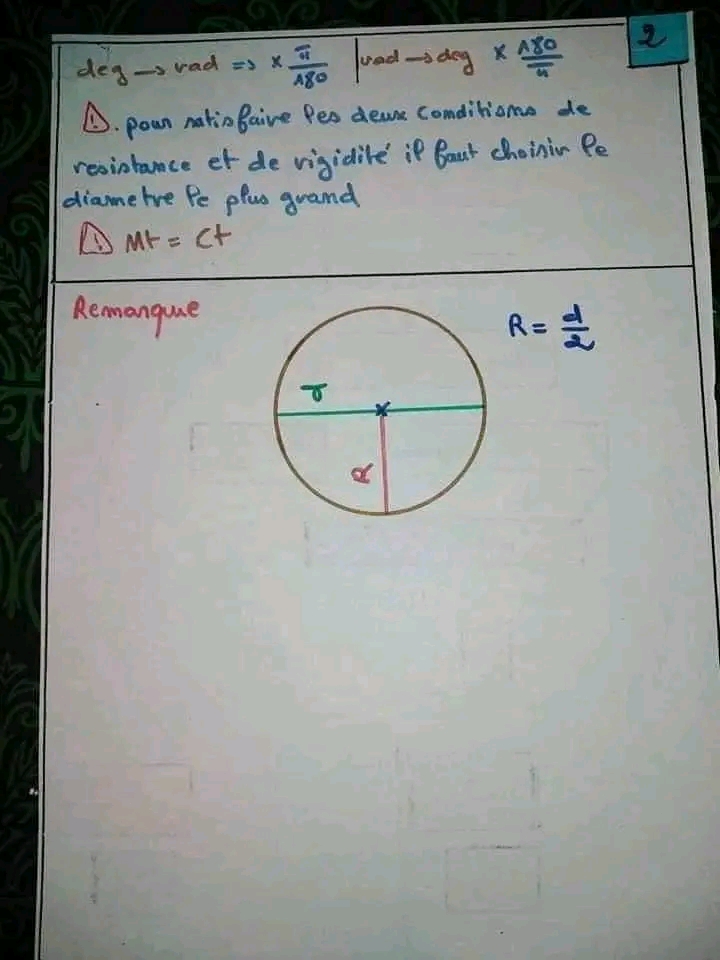 2
deg → rad => × π/180 | rad → deg × 180/π
⚠. pour satisfaire les deux conditions de
resistance et de rigidité il faut choisir le
diametre le plus grand
⚠ Mt = Ct
Remarque
R = d/2
d
R